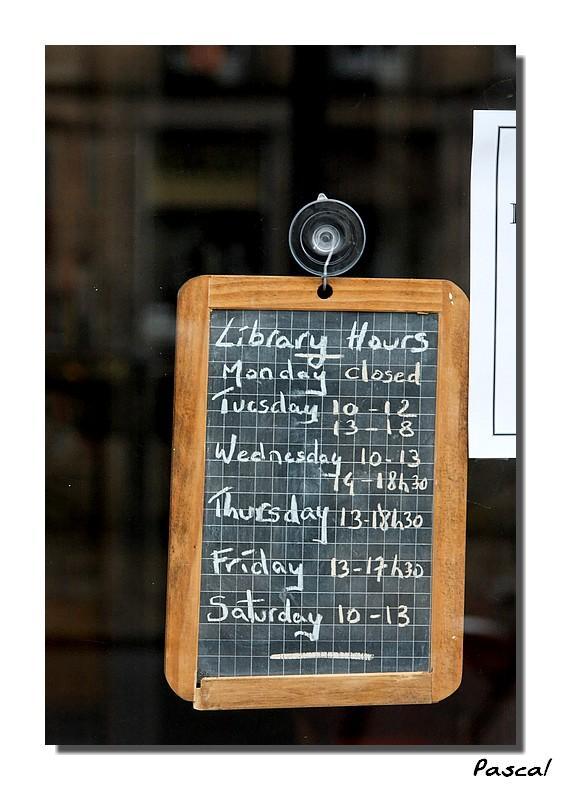 Library Hours
Monday closed
Tuesday 10-12
13-18
Wednesday 10-13
14-18h30
Thursday 13-18h30
Friday 13-17h30
Saturday 10-13
Pascal